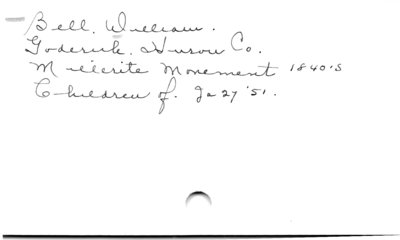 Bell, William.
Goderich. Huron Co.
Millerite Movement 1840's
Children of. Ja 27 '51.